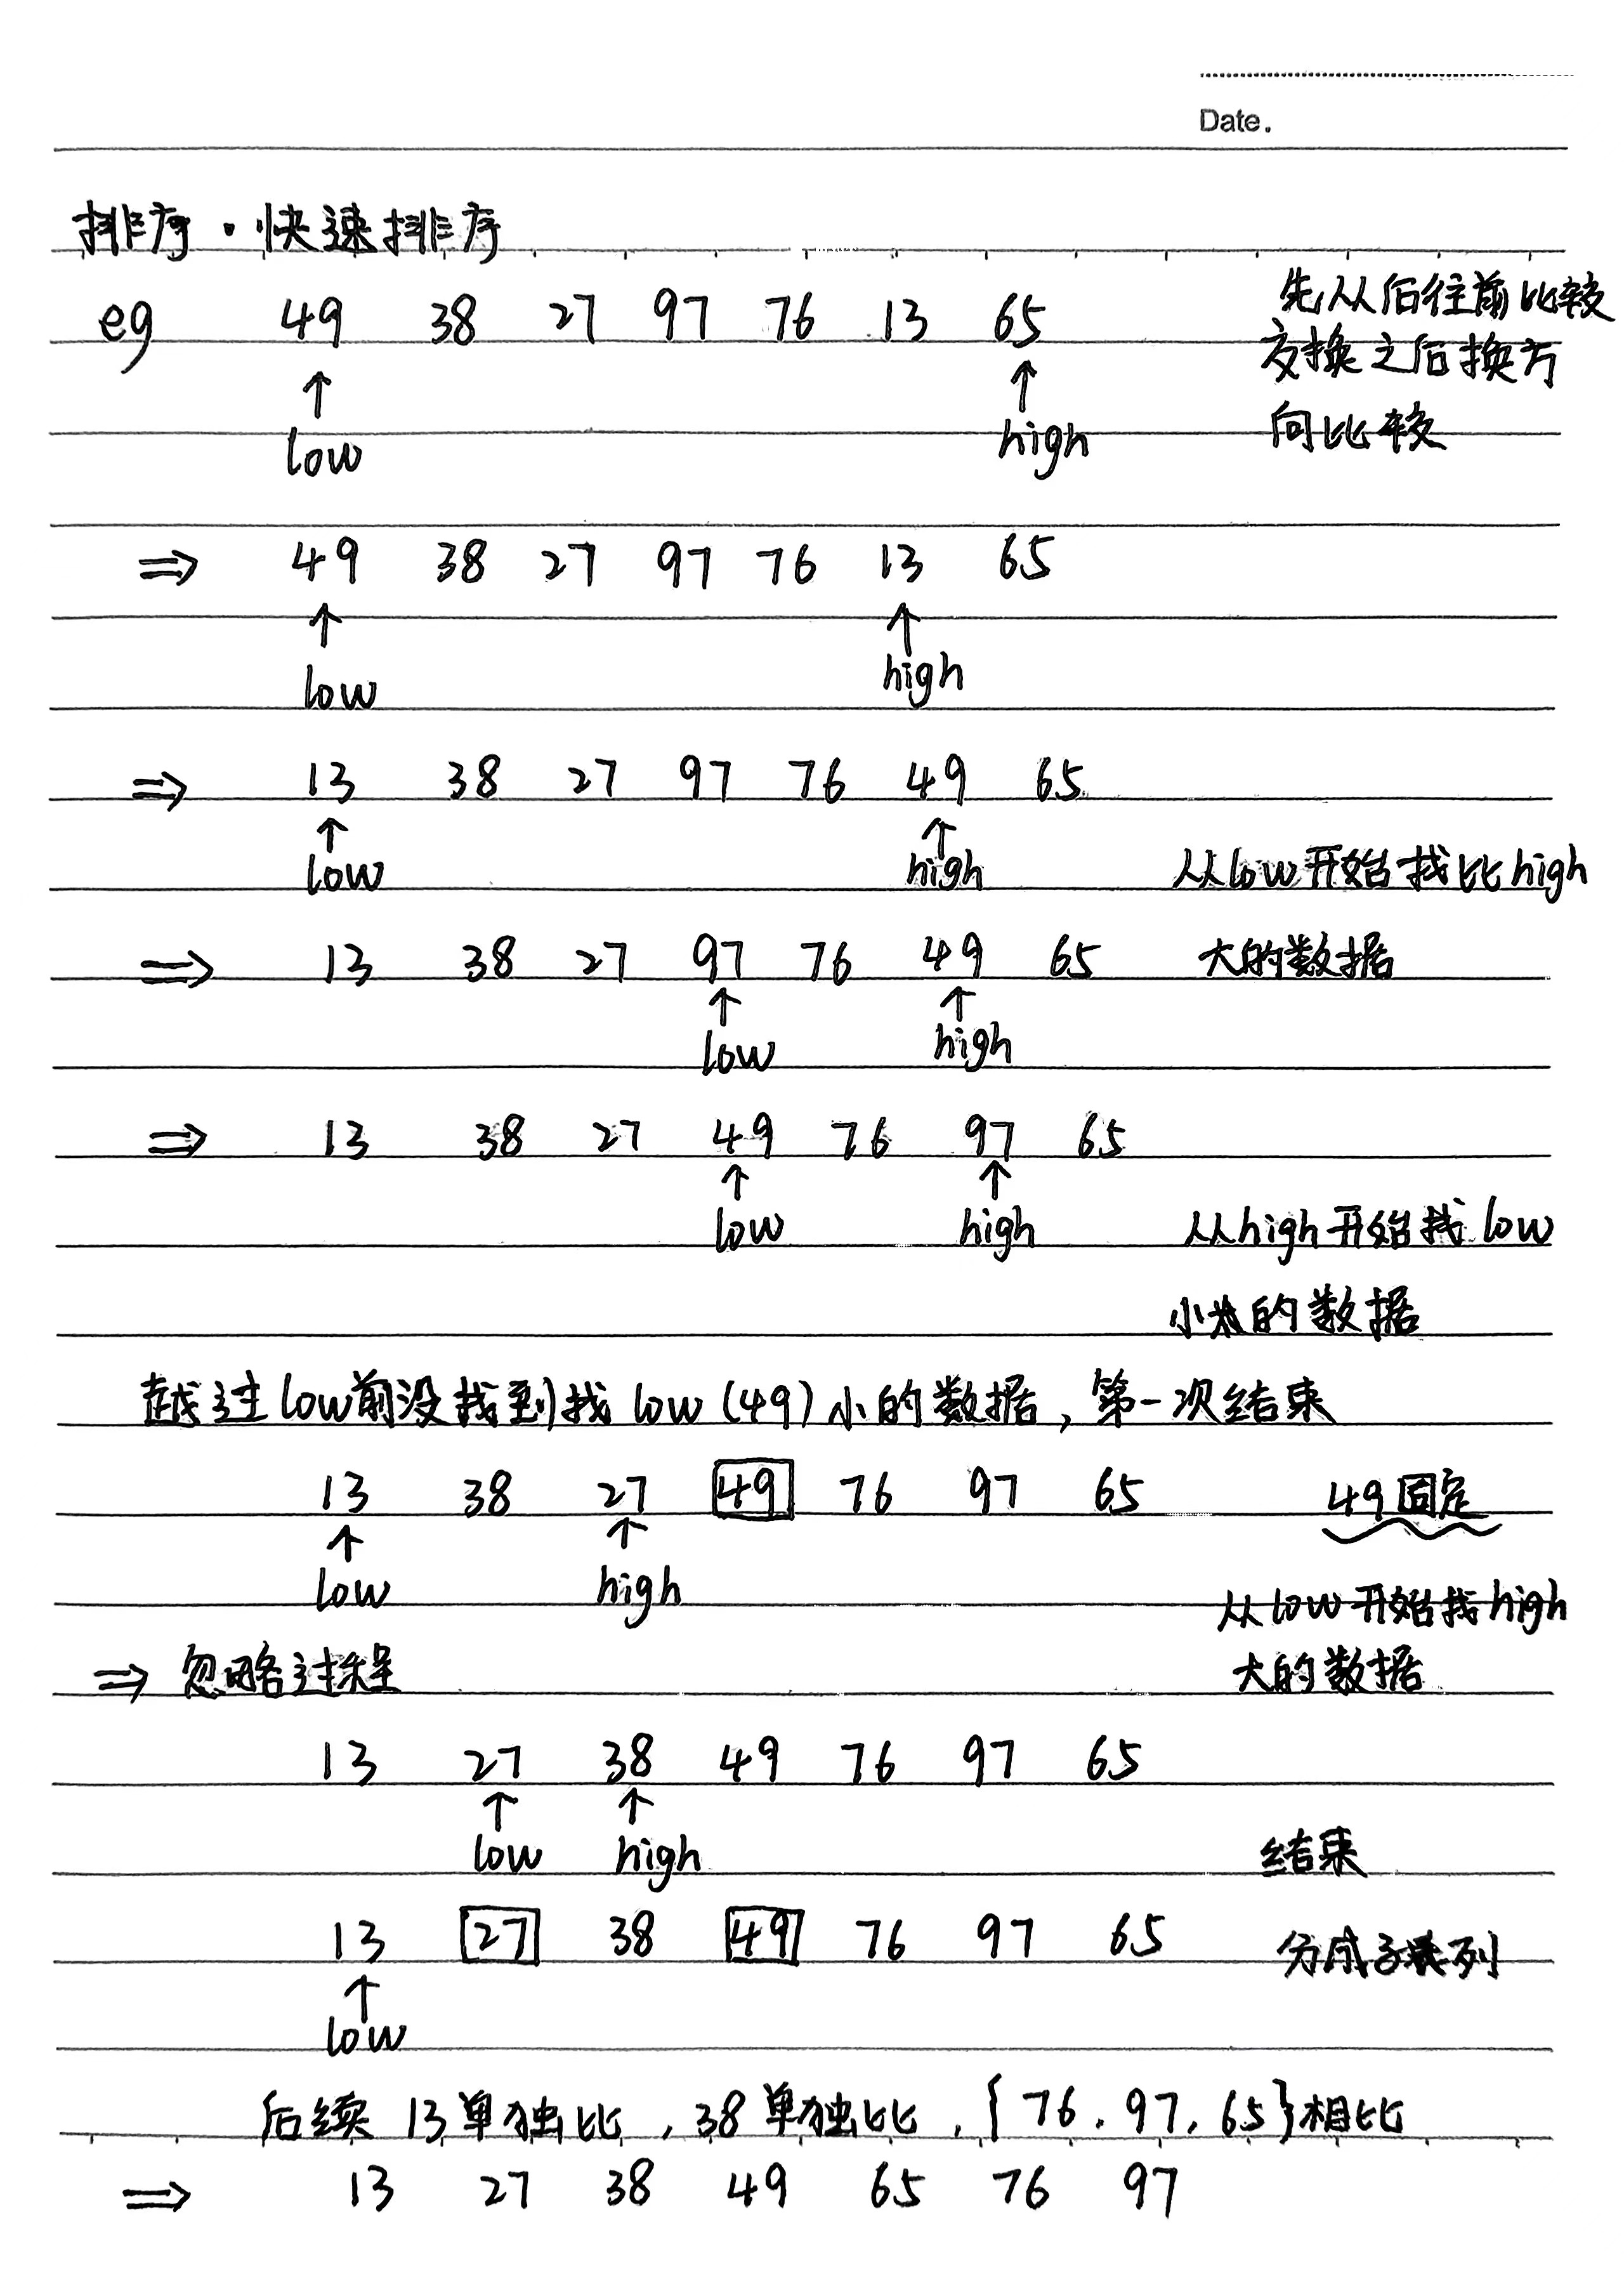 Date.
排序·快速排序
eg 49 38 27 97 76 13 65 先从后往前比较
交换之后换方
↑ ↑
low high 向比较
⇒ 49 38 27 97 76 13 65
↑ ↑
low high
⇒ 13 38 27 97 76 49 65
↑ ↑
low high 从low开始找比high
⇒ 13 38 27 97 76 49 65 大的数据
↑ ↑
low high
⇒ 13 38 27 49 76 97 65
↑ ↑
low high 从high开始找low
小的数据
越过low前没找到找low(49)小的数据,第一次结束
13 38 27 49 76 97 65 49固定
↑ ↑
low high 从low开始找high
⇒ 忽略过程 大的数据
13 27 38 49 76 97 65
↑ ↑
low high 结束
13 27 38 49 76 97 65 分成子列
↑
low
后续 13单独比,38单独比,{76,97,65}相比
⇒ 13 27 38 49 65 76 97